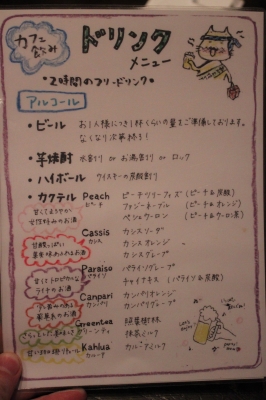 カフェ飲み
ドリンク
メニュー
*2時間のフリードリンク*
アルコール
・ビール お1人様につき1杯くらいの量でご準備しております。
なくなり次第終了!
・芋焼酎 水割り or お湯割り or ロック
・ハイボール ウイスキーの炭酸割り
・カクテル Peach ピーチ ピーチツリーフィズ (ピーチ&炭酸)
ファジーネーブル (ピーチ&オレンジ)
ペシェウーロン (ピーチ&ウーロン茶)
女性好みのお酒
Cassis カシス カシスソーダ
カシスオレンジ
カシスグレープ
甘酸っぱい
果実味あふれるお酒
Paraiso パライソ パライソグレープ
チャイナキス (パライソ&炭酸)
甘くトロピカルな
ライチのお酒
Campari カンパリ カンパリオレンジ
カンパリグレープ
Greentea グリーンティ 照葉樹林
抹茶ミルク
Kahlua カルーア カルーアミルク